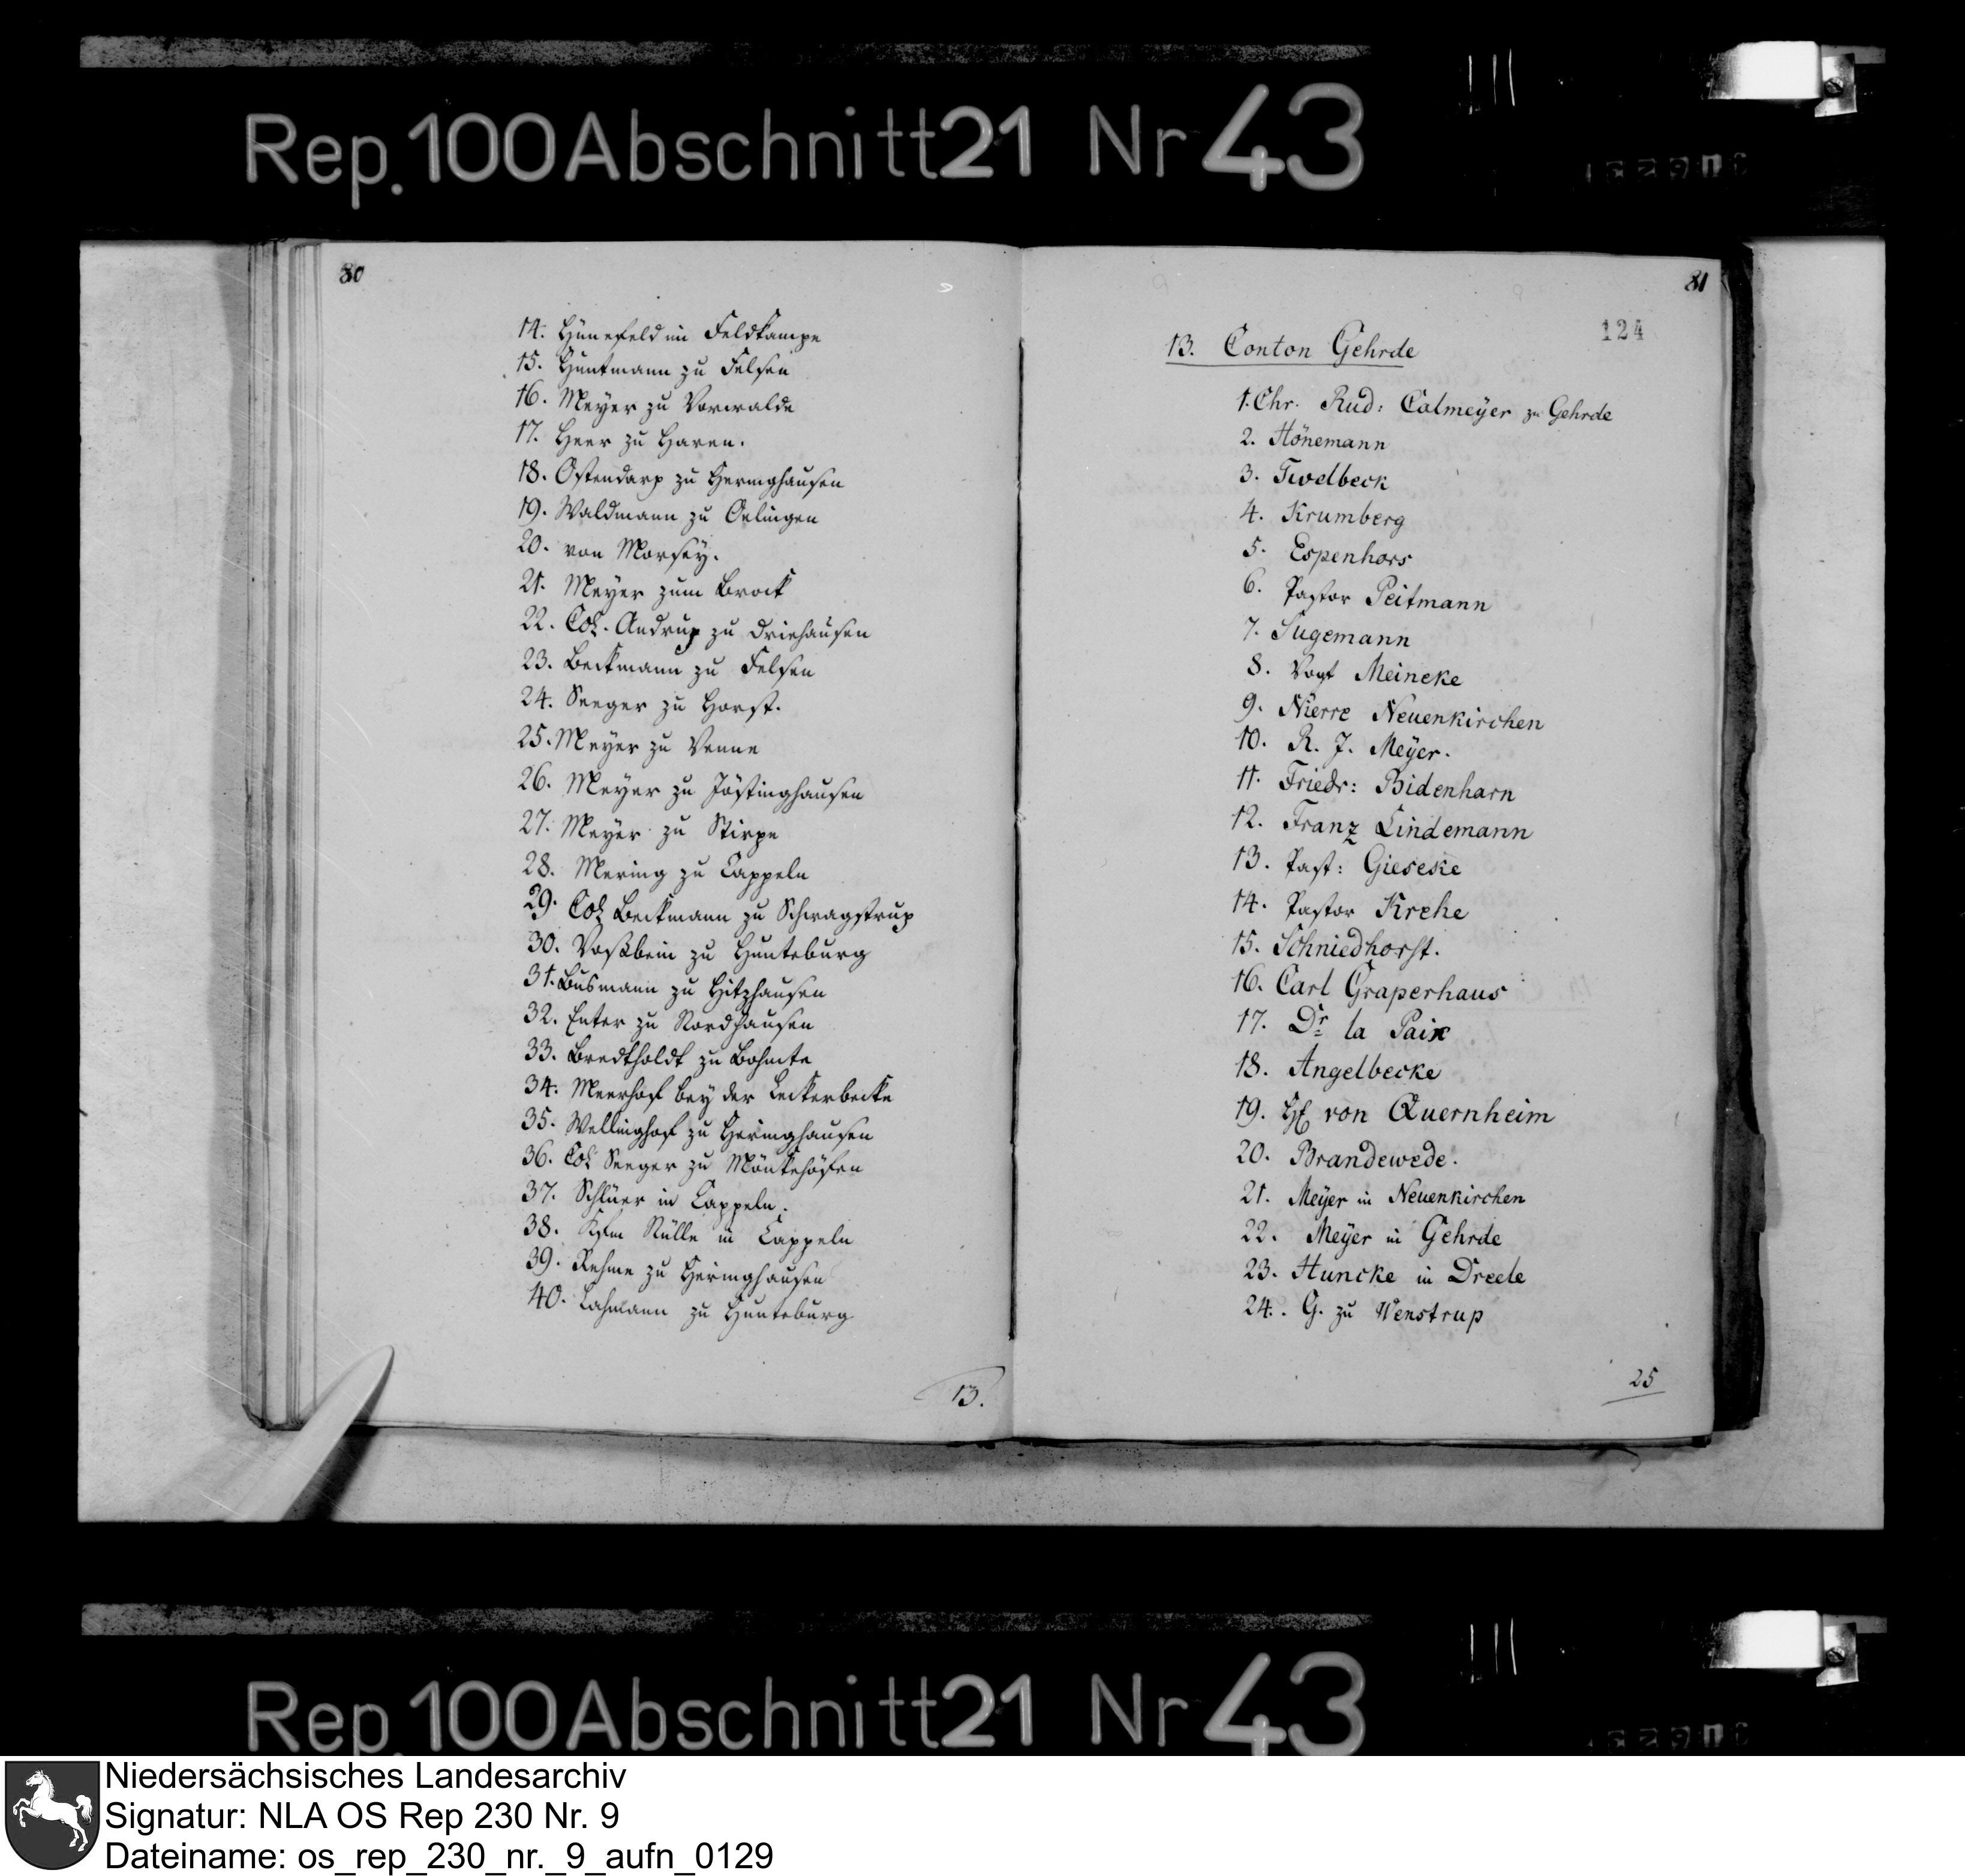 Rep. 100 Abschnitt 21 Nr 43
80
14. Hünefeld im Feldkampe
15. Huntmann zu Felsen
16. Meyer zu Vorwalde
17. Heer zu Haren.
18. Ostendarp zu Heringhausen
19. Waldmann zu Oelingen
20. von Morsey.
21. Meyer zum Brock
22. Col. Andrup zu Driehausen
23. Beckmann zu Felsen
24. Seeger zu Horst.
25. Meyer zu Venne
26. Meyer zu Jöstinghausen
27. Meyer zu Stirpe
28. Mering zu Cappeln
29. Col Beckmann zu Schwagstrup
30. Voßbein zu Hunteburg
31. Busmann zu Hitzhausen
32. Enter zu Nordhausen
33. Bredtholdt zu Bohmte
34. Meerhof bey der Leckerbecke
35. Wellinghof zu Heringhausen
36. Col Seeger zu Mönkehöfen
37. Schlüer in Cappeln.
38. Kfm Nülle in Cappeln
39. Rehme zu Heringhausen
40. Lahmann zu Hunteburg
13.
81
124
13. Conton Gehrde
1. Chr. Rud: Calmeÿer zu Gehrde
2. Hönemann
3. Twelbeck
4. Krumberg
5. Espenhors
6. Pastor Peitmann
7. Sugemann
8. Vogt Meineke
9. Nierre Neuenkirchen
10. R. J. Meÿer.
11. Friedr: Bidenharn
12. Franz Lindemann
13. Past: Gieseke
14. Pastor Krehe
15. Schniedhorst.
16. Carl Graperhaus
17. Dr la Paix
18. Angelbecke
19. H von Quernheim
20. Brandewede.
21. Meÿer in Neuenkirchen
22. Meÿer in Gehrde
23. Huncke in Dreele
24. G. zu Wenstrup
25
Rep. 100 Abschnitt 21 Nr 43
Niedersächsisches Landesarchiv
Signatur: NLA OS Rep 230 Nr. 9
Dateiname: os_rep_230_nr._9_aufn_0129